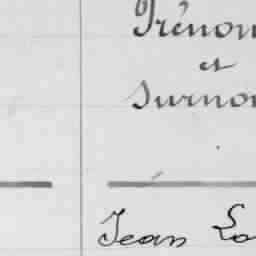 Prénom
et
Surnom
Jean Lo